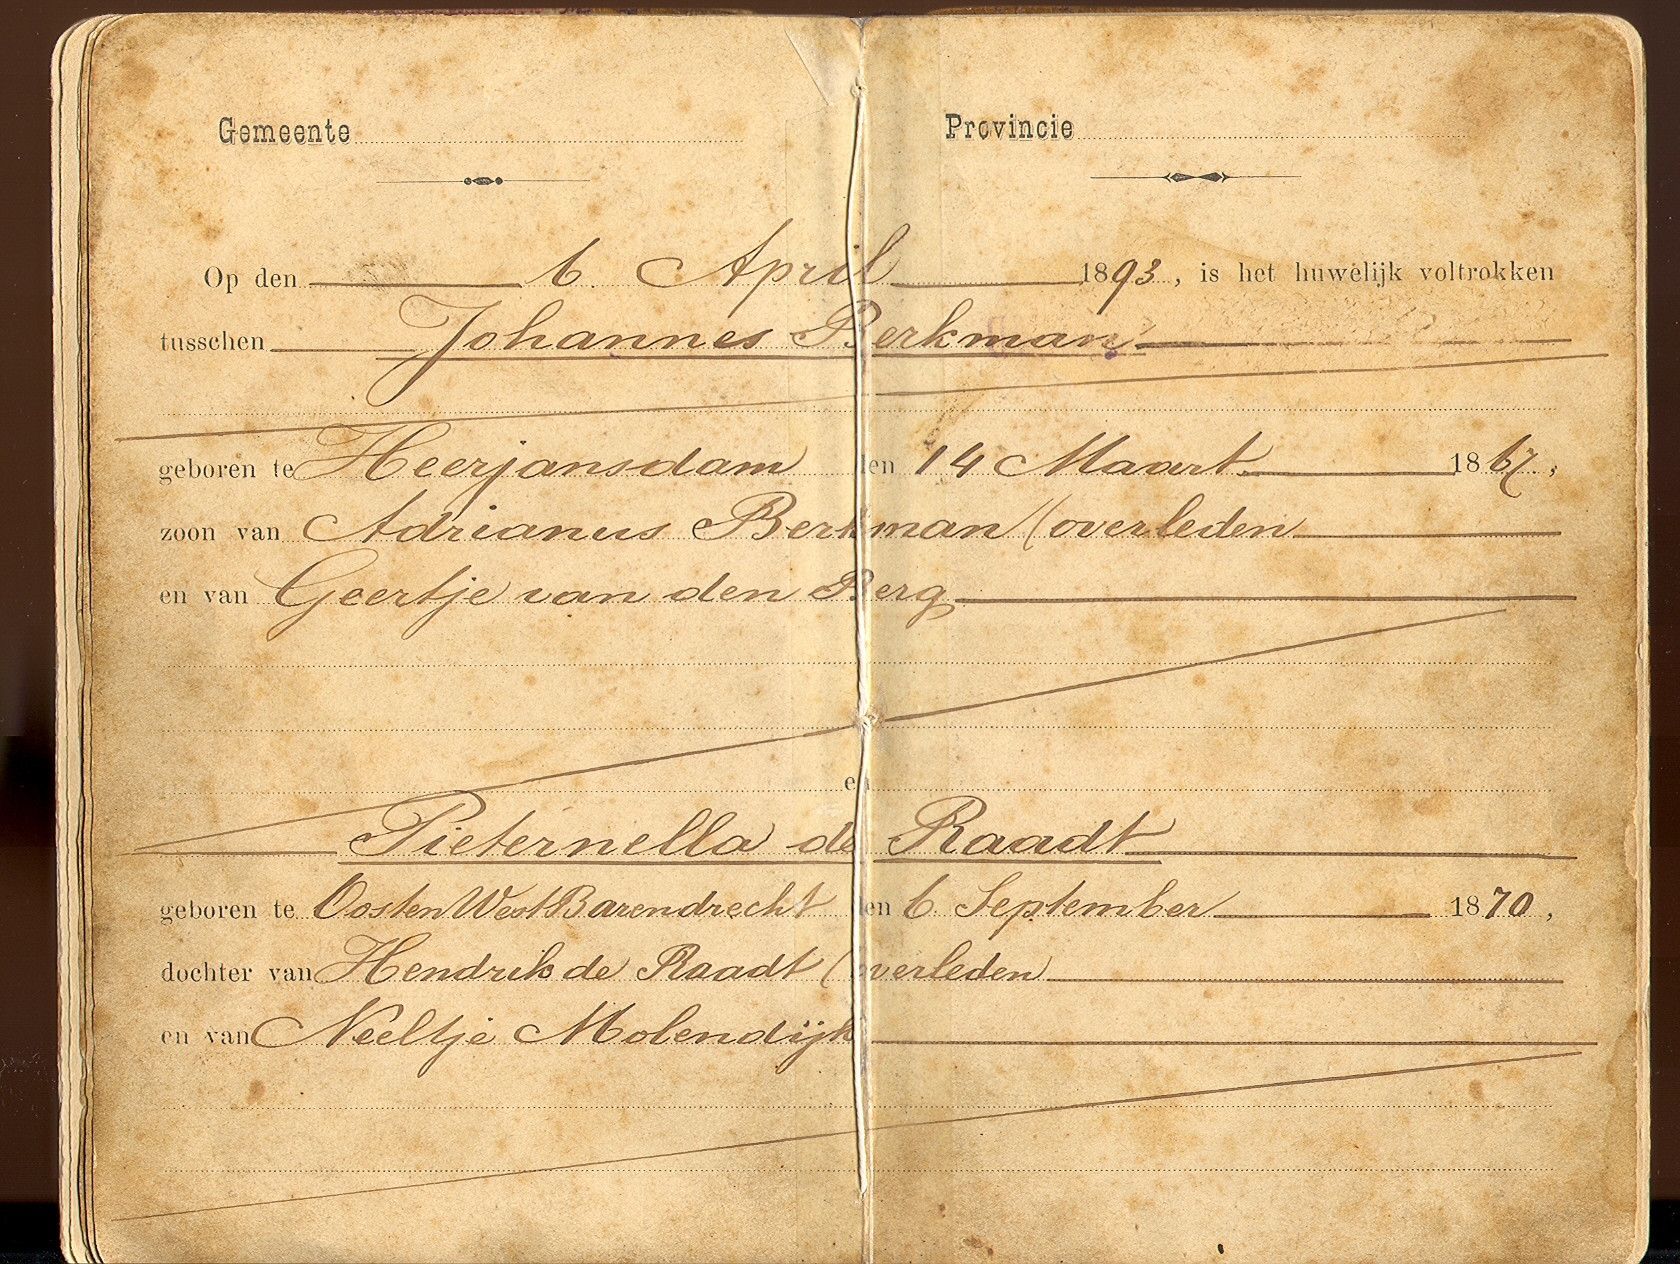 Gemeente Provincie
Op den 6. April 1893, is het huwelijk voltrokken
tusschen Johannes Berkman
geboren te Heerjansdam den 14 Maart 1867,
zoon van Adrianus Berkman (overleden
en van Geertje van den Berg
en
Pieternella de Raadt
geboren te Oost en West Barendrecht den 6. September 1870,
dochter van Hendrik de Raadt (overleden
en van Neeltje Molendijk